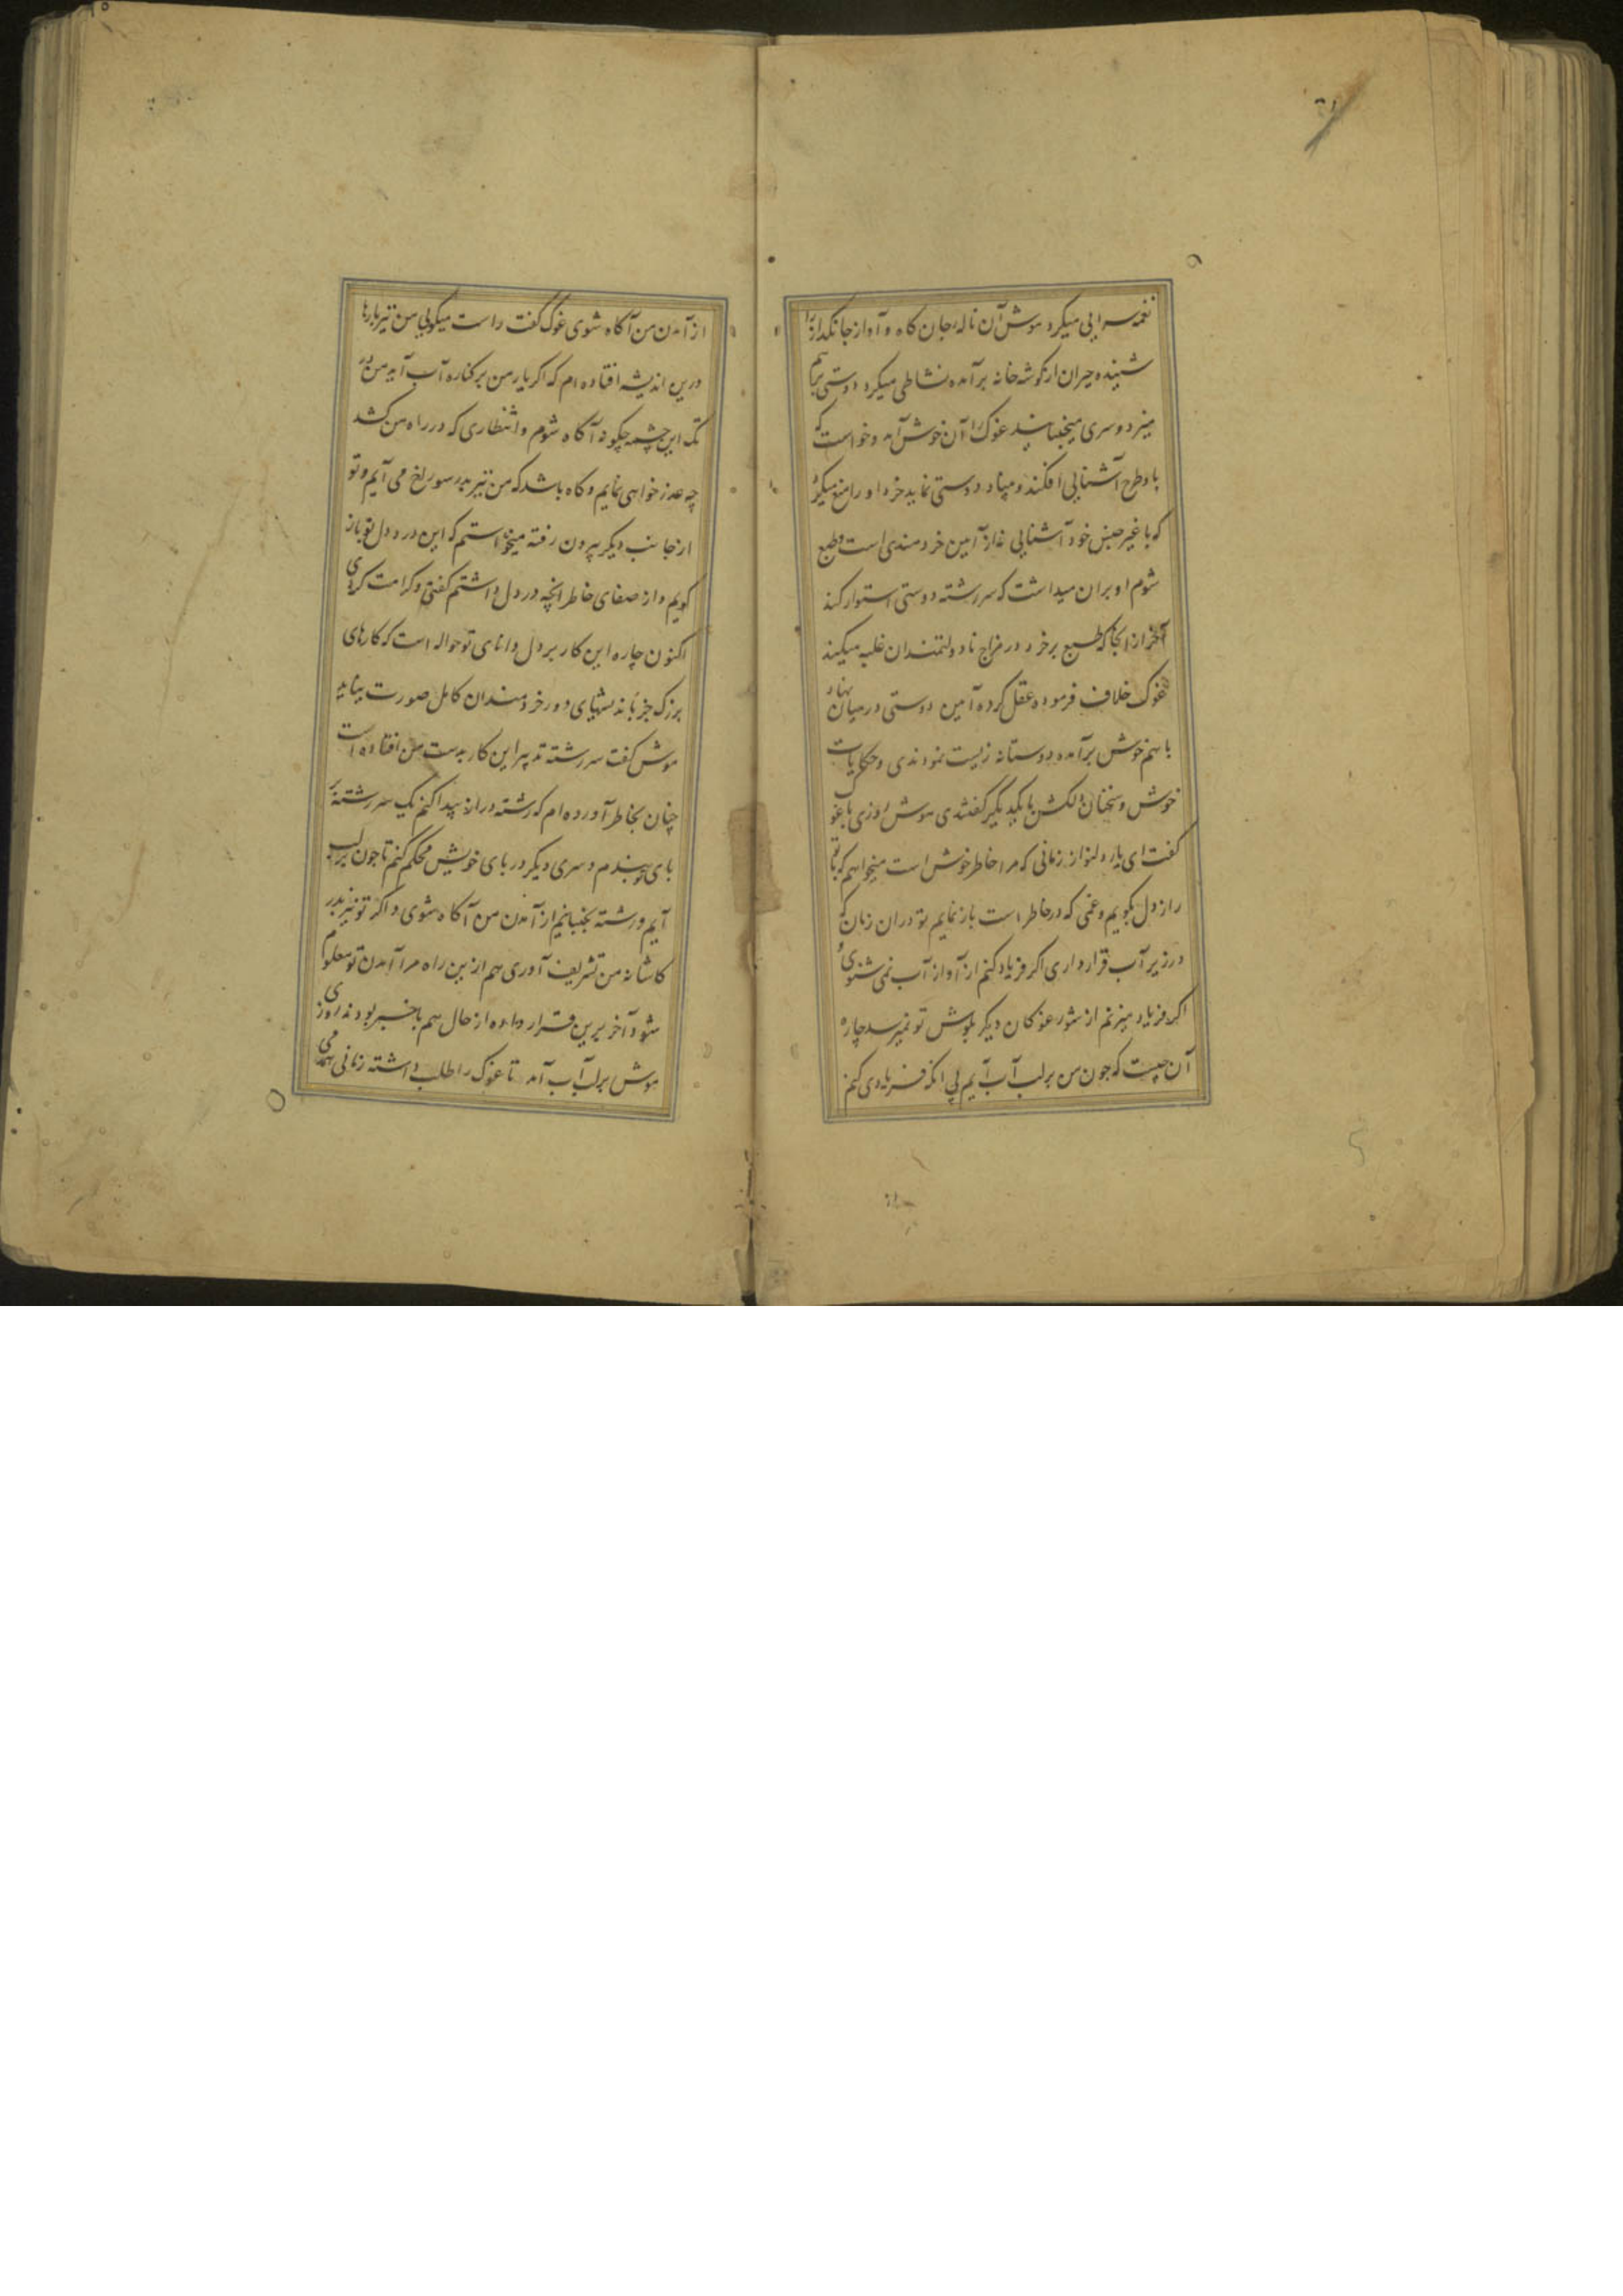 نغمه سرایی میکرد موش آن ناله جان کاه و آواز جانگداز را
شنیده حیران از گوشه خانه برآمده نشاطی میکرد و دستی برهم
میزد و سری میجنبانید غوک را آن خوش آمد و خواست که
با و طرح آشنایی افکند و میناد دوستی نماید خرد او را منع میکرد
که با غیر جنس خود آشنایی نه از آیین خردمندی است و طبع
شوم او بران میداشت که سررشته دوستی استوار کند
آخر از انجا که طبع بر خرد در مزاج نادولتمندان غلبه میکند
غوک خلاف فرموده عقل کرده آیین دوستی در میان نهاد
با هم خوش برآمده دوستانه زیست نمودندی و حکایات
خوش و سخنان دلکش با یکدیگر گفتندی موش روزی با غوک
گفت ای یار دلنواز زمانی که مرا خاطر خوش است میخواهم که با تو
راز دل بگویم و غمی که در خاطر است باز نمایم تو دران زمان که
در زیر آب قرار داری اگر فریاد کنم از آواز آب نمی شنوی و
اگر فریاد میزنم از شور غوکان دیگر بگوش تو نمیرسد چاره
آن چیست که چون من بر لب آب آیم بی انکه فریادی کنم
از آمدن من آگاه شوی غوک گفت راست میگویی من نیز بارها
درین اندیشه افتاده ام که اگر یار من بر کناره آب آید من در
تک این چشمه چگونه آگاه شوم و انتظاری که در راه من کشد
چه عذر خواهی نمایم و گاه باشد که من نیز بدر سوراخ می آیم و تو
از جانب دیگر بیرون رفته میخواستم که این درد دل تو باز
گویم و از صفای خاطر انچه در دل داشتم گفتی و کرامت کردی
اکنون چاره این کار بر دل دانای تو حواله است که کارهای
بزرگ جز باندیشهای دور خردمندان کامل صورت نیابد
موش گفت سررشته تدبیر این کار بدست من افتاده است
چنان بخاطر آورده ام که رشته دراز پیدا کنم یک سر رشته بر
پای تو بندم و سری دیگر در پای خویش محکم کنم تا چون بر لب آب
آیم و رشته بجنبانیم از آمدن من آگاه شوی و اگر تو نیز بدر
کاشانه من تشریف آوری هم ازین راه مرا آمدن تو معلوم
شود آخر برین قرار داده از حال هم باخبر بودند روزی
موش بر لب آب آمد تا غوک را طلب داشته زمانی